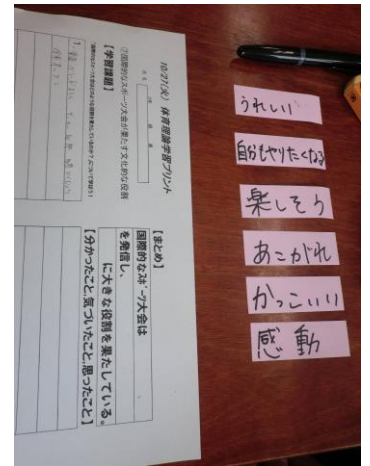 10/27(火) 体育理論学習プリント
⑦国際的なスポーツ大会が果たす文化的な役割
【学習課題】
1.
【まとめ】
国際的なスポーツ大会は
を発信し、
に大きな役割を果たしている。
【分かったこと、気づいたこと、思ったこと】
うれしい
自分もやりたくなる
楽しそう
あこがれ
かっこいい
感動